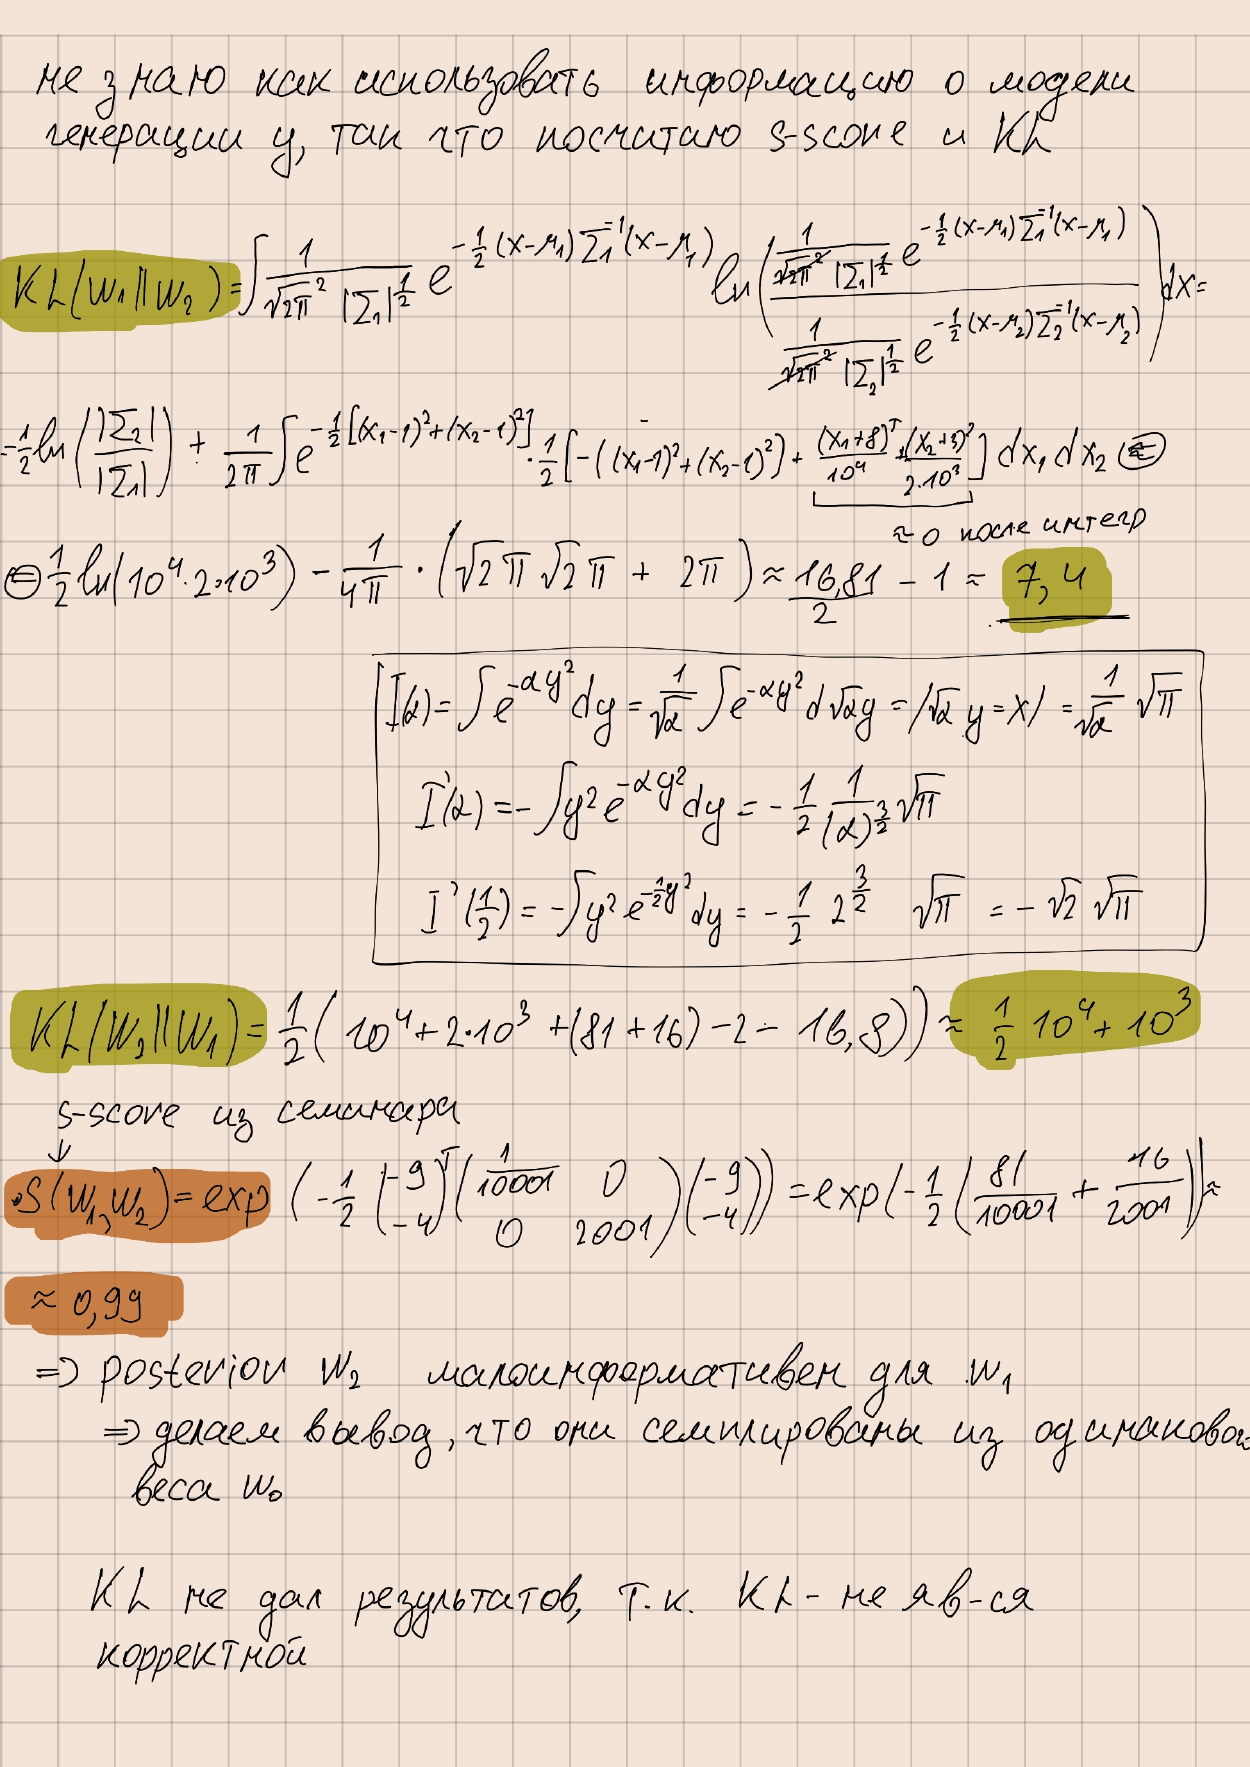 не знаю как использовать информацию о модели
генерации y, так что посчитаю s-score и KL
KL(w₁||w₂) = ∫ 1/(√2π² |Σ₁|^(1/2)) e^(-1/2 (x-μ₁) Σ₁⁻¹ (x-μ₁)) ln( (1/(√2π² |Σ₁|^(1/2)) e^(-1/2 (x-μ₁) Σ₁⁻¹ (x-μ₁))) / (1/(√2π² |Σ₂|^(1/2)) e^(-1/2 (x-μ₂) Σ₂⁻¹ (x-μ₂))) ) dx =
= 1/2 ln(|Σ₂|/|Σ₁|) + 1/2π ∫ e^(-1/2[(x₁-1)²+(x₂-1)²]) · 1/2 [-((x₁-1)²+(x₂-1)²) + (x₁+8)ᵀ/10⁴ + (x₂+3)²/2·10³] dx₁ dx₂ ⊜
≈ 0 после интегр
⊜ 1/2 ln(10⁴·2·10³) - 1/4π · (√2π √2π + 2π) ≈ 16,81/2 - 1 ≈ 7,4
I(α) = ∫ e^(-αy²) dy = 1/√α ∫ e^(-αy²) d√αy = /√α y = x/ = 1/√α √π
I'(α) = - ∫ y² e^(-αy²) dy = - 1/2 1/(α)^(3/2) √π
I'(1/2) = - ∫ y² e^(-1/2 y²) dy = - 1/2 2^(3/2) √π = - √2 √π
KL(w₂||w₁) = 1/2 ( 10⁴ + 2·10³ + (81+16) - 2 - 16,8)) ≈ 1/2 10⁴ + 10³
s-score из семинара
↓
S(w₁,w₂) = exp (-1/2 (-9 -4)ᵀ (1/10001 0 0 2001) (-9 -4)) = exp(-1/2 (81/10001 + 16/2001)) ≈
≈ 0,99
⇒ posterior w₂ малоинформативен для w₁
⇒ делаем вывод, что они семплированы из одинакового
веса w₀
KL не дал результатов, т.к. KL - не яв-ся
корректной